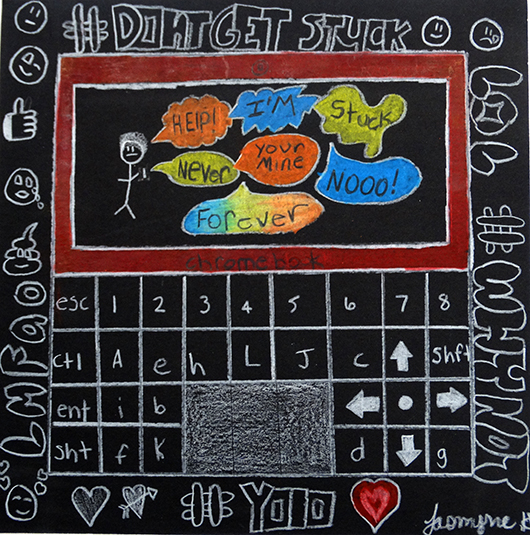 #DONT GET STUCK
HELP!
I'M
Stuck
Never
Your
Mine
NOOO!
Forever
esc 1 2 3 4 5 6 7 8
ctl A e h L J c Shft
ent i b
sht f K d g
LMFAO
LOL
#WHYNOT
#YOLO
Jasmyne